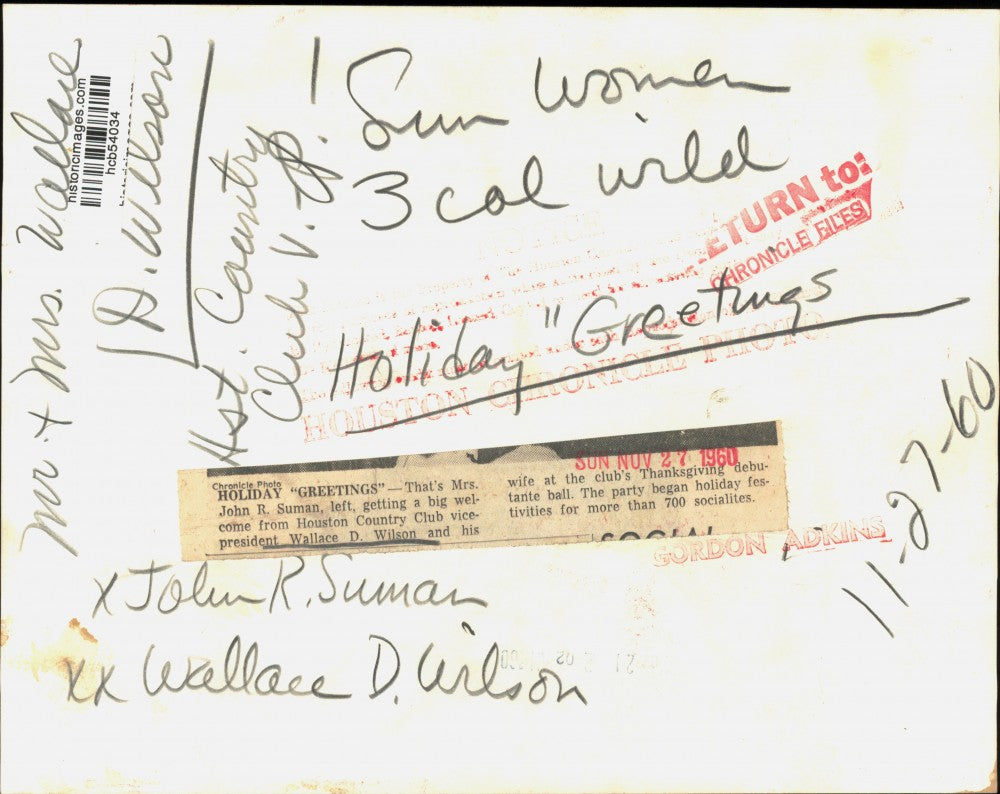 Mr. + Mrs. Wallace
D. Wilson
historicimages.com
hcb54034
Hst. Country
Club V. P.!
Sun Women
3 col wild
RETURN to:
CHRONICLE FILES
Holiday "Greetings
HOUSTON CHRONICLE PHOTO
11-27-60
SUN NOV 27 1960
Chronicle Photo
HOLIDAY "GREETINGS"—That's Mrs.
John R. Suman, left, getting a big wel-
come from Houston Country Club vice-
president Wallace D. Wilson and his
wife at the club's Thanksgiving debu-
tante ball. The party began holiday fes-
tivities for more than 700 socialites.
GORDON ADKINS
x John R. Suman
xx Wallace D. Wilson